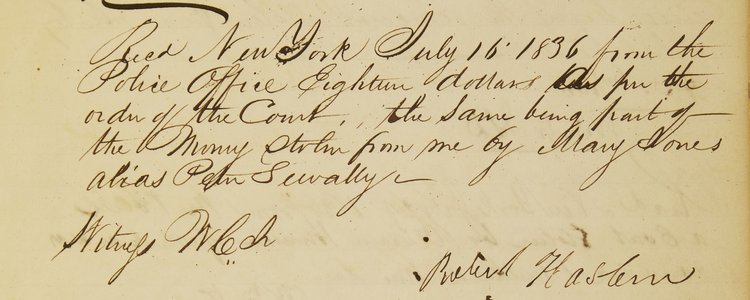 Recd New York July 16 1836 from the
Police Office Eighteen dollars as per the
order of the Court, the same being part of
the Money Stolen from me by Mary Jones
alias Peter Sewally
Witness W C
Robert Haslem